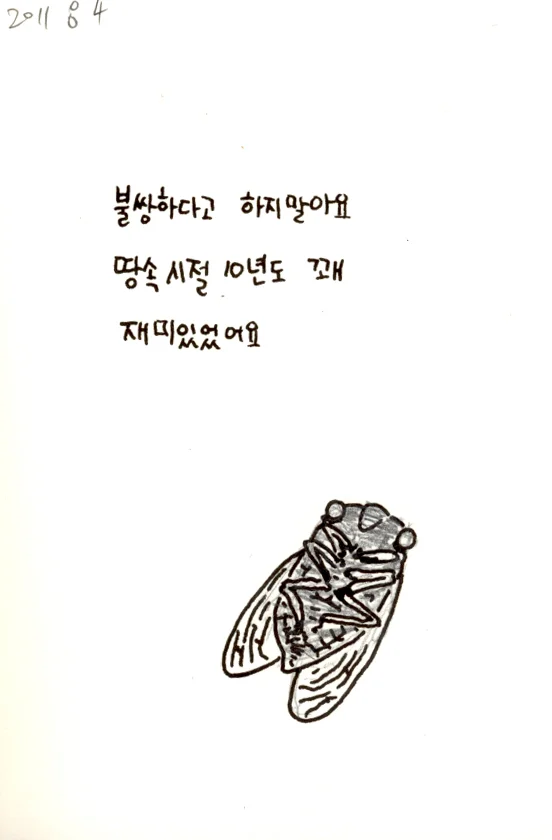 2011 8 4
불쌍하다고 하지말아요
땅속 시절 10년도 꽤
재미있었어요